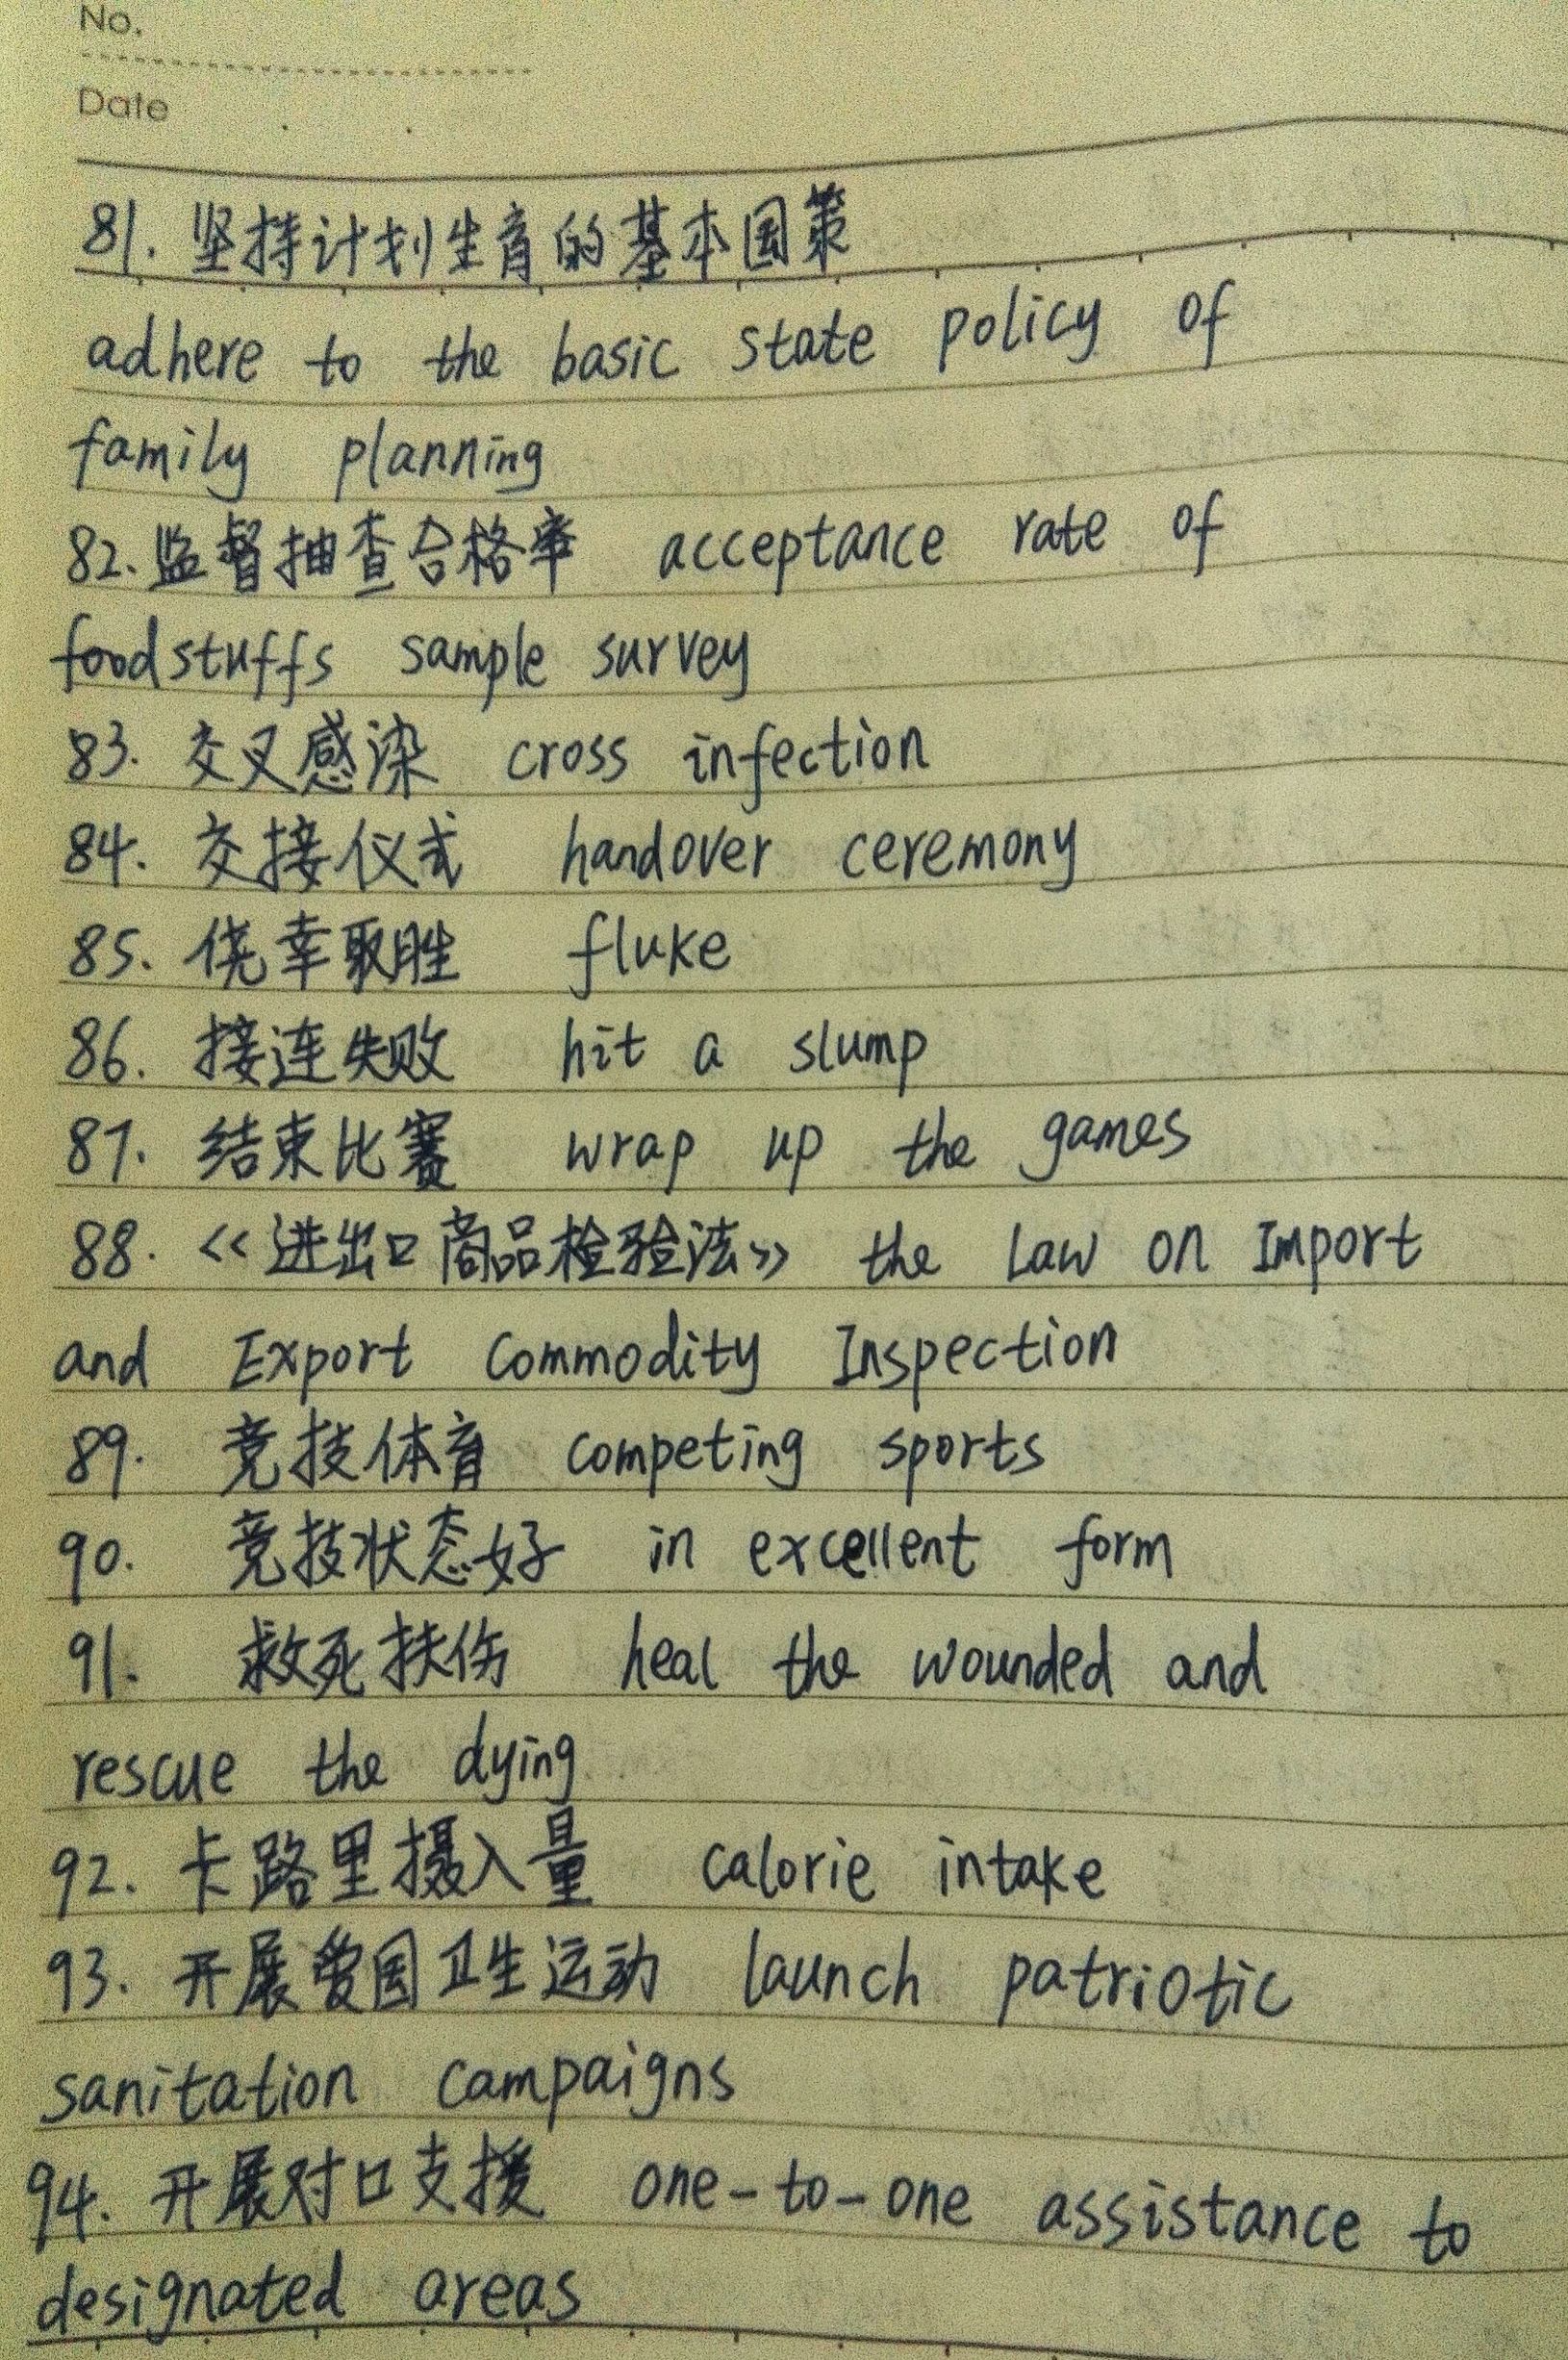 No.
Date
81. 坚持计划生育的基本国策
adhere to the basic state policy of
family planning
82. 监督抽查合格率 acceptance rate of
foodstuffs sample survey
83. 交叉感染 cross infection
84. 交接仪式 handover ceremony
85. 侥幸取胜 fluke
86. 接连失败 hit a slump
87. 结束比赛 wrap up the games
88. <<进出口商品检验法>> the Law on Import
and Export Commodity Inspection
89. 竞技体育 competing sports
90. 竞技状态好 in excellent form
91. 救死扶伤 heal the wounded and
rescue the dying
92. 卡路里摄入量 calorie intake
93. 开展爱国卫生运动 launch patriotic
sanitation campaigns
94. 开展对口支援 one-to-one assistance to
designated areas